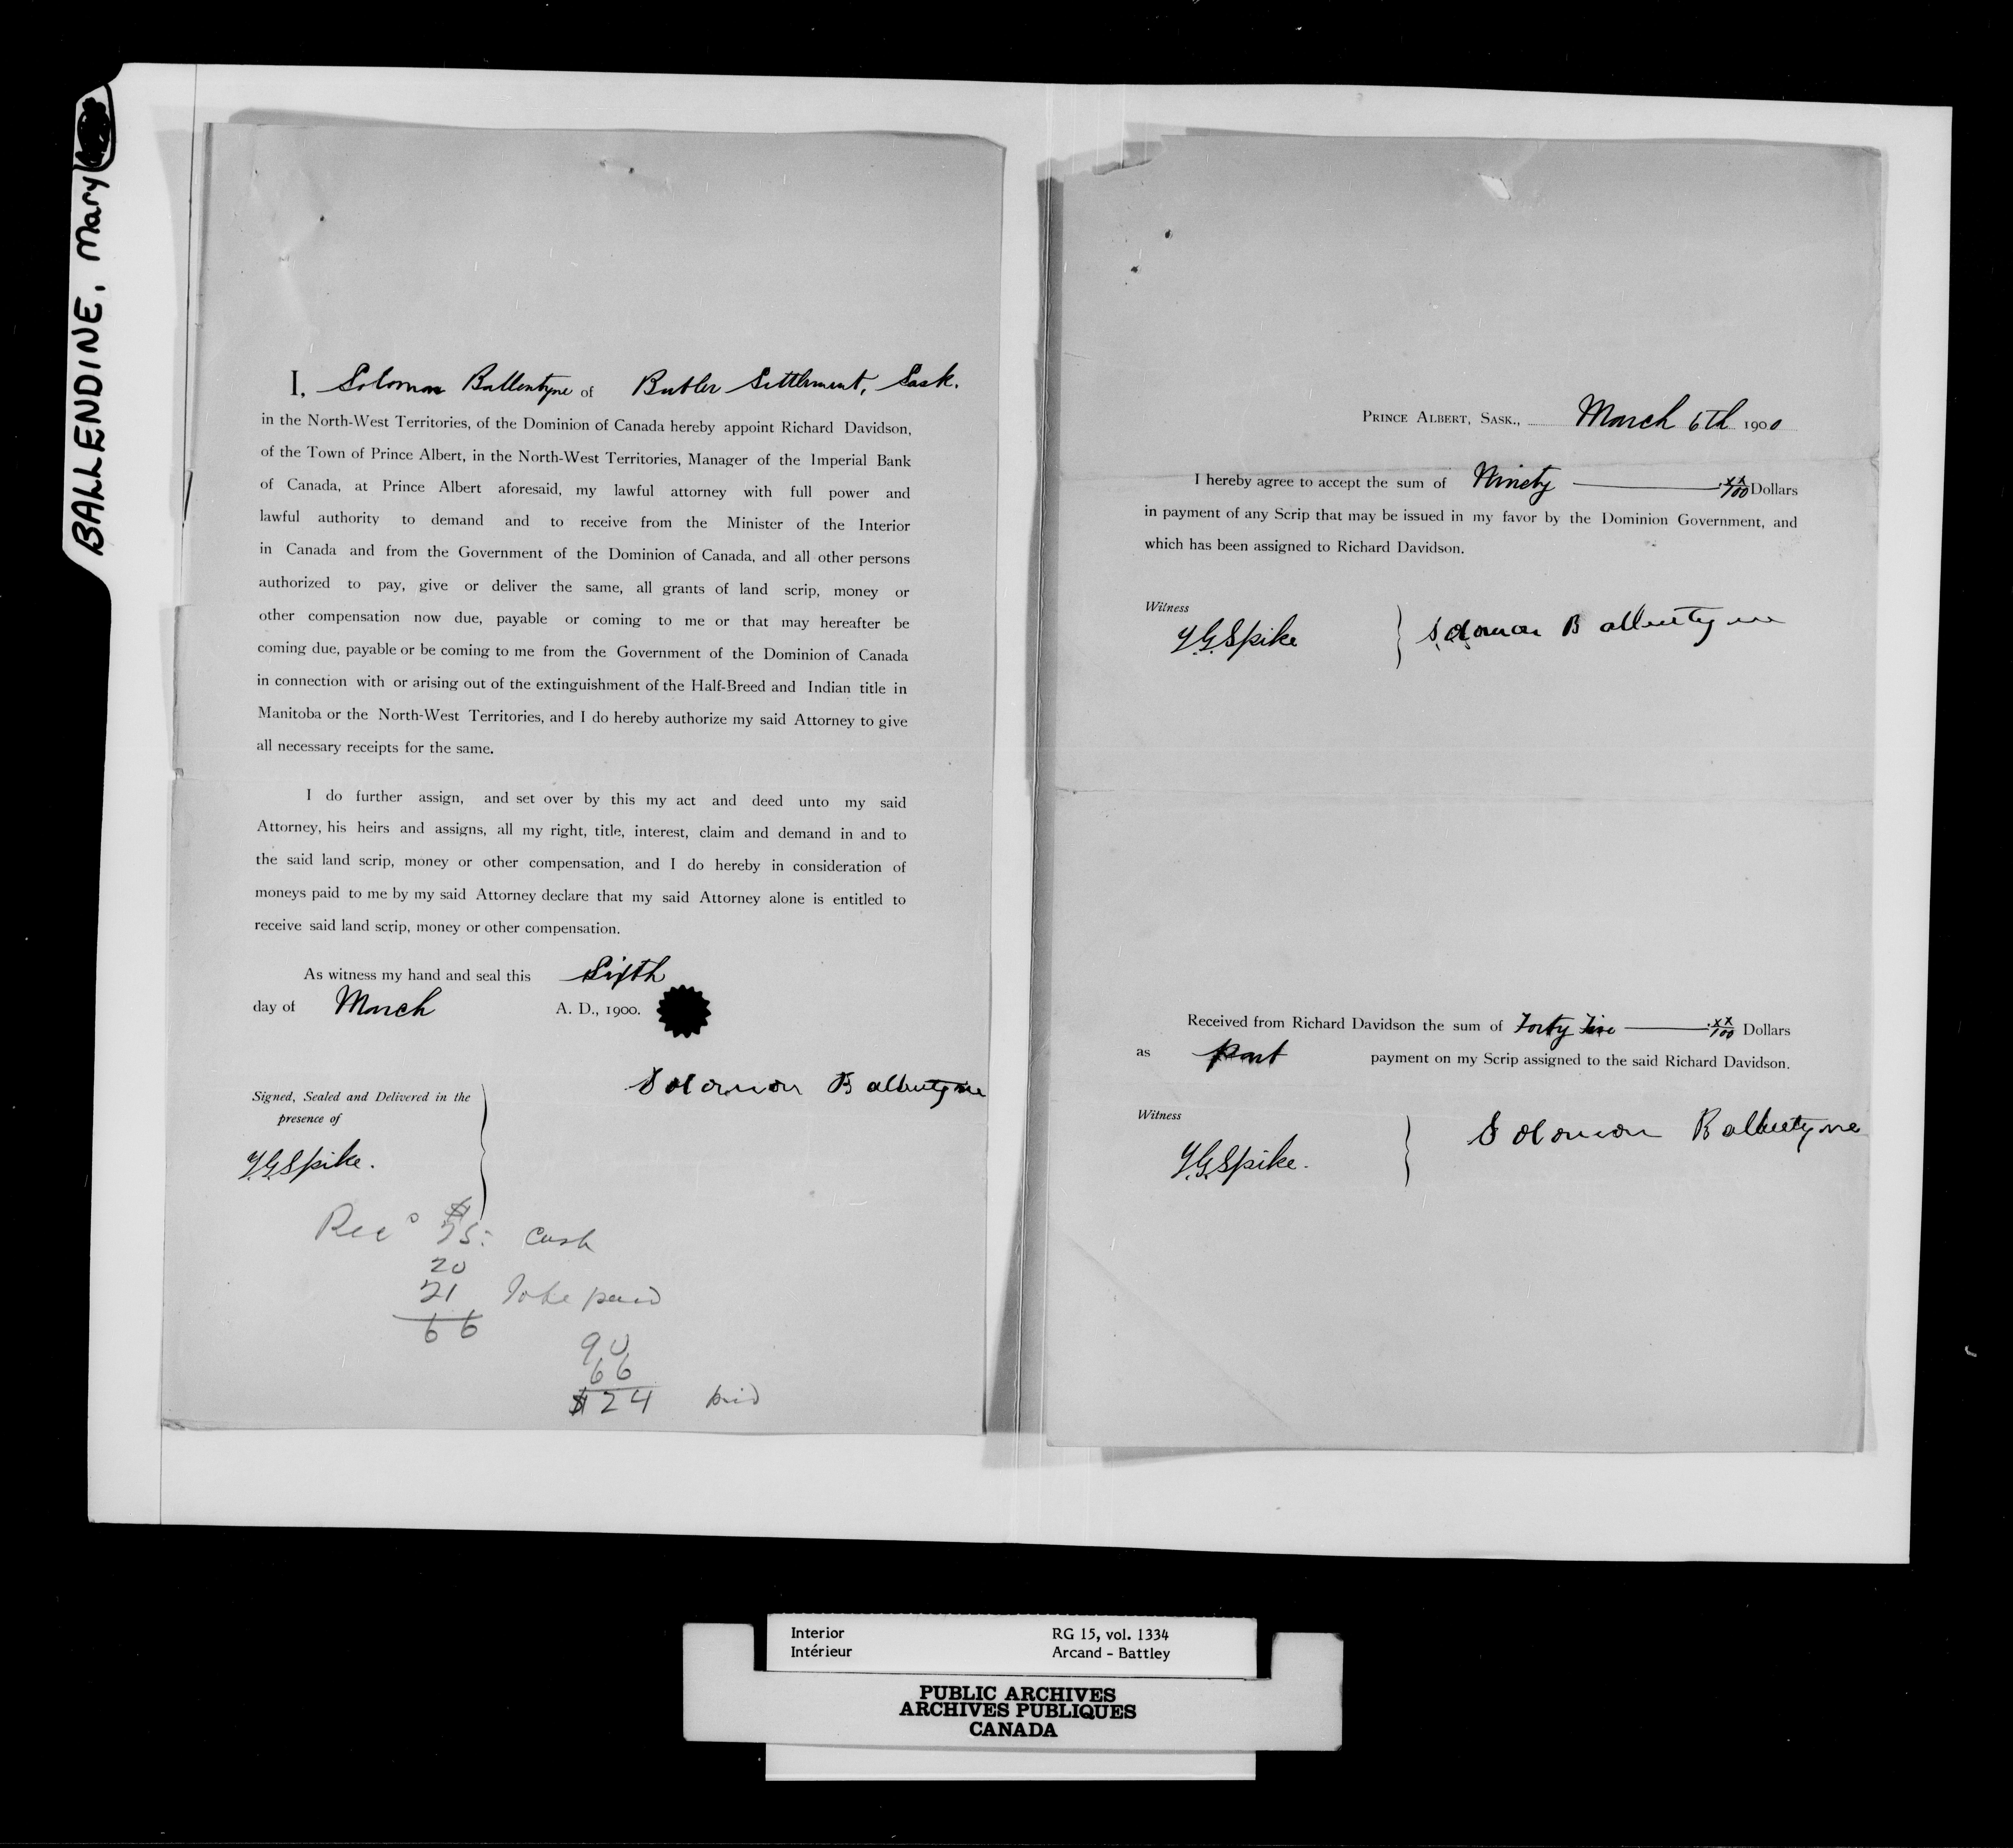 BALLENDINE, Mary
I, Solomon Ballentyne of Butler Settlement, Sask.
in the North-West Territories, of the Dominion of Canada hereby appoint Richard Davidson,
of the Town of Prince Albert, in the North-West Territories, Manager of the Imperial Bank
of Canada, at Prince Albert aforesaid, my lawful attorney with full power and
lawful authority to demand and to receive from the Minister of the Interior
in Canada and from the Government of the Dominion of Canada, and all other persons
authorized to pay, give or deliver the same, all grants of land scrip, money or
other compensation now due, payable or coming to me or that may hereafter be
coming due, payable or be coming to me from the Government of the Dominion of Canada
in connection with or arising out of the extinguishment of the Half-Breed and Indian title in
Manitoba or the North-West Territories, and I do hereby authorize my said Attorney to give
all necessary receipts for the same.
I do further assign, and set over by this my act and deed unto my said
Attorney, his heirs and assigns, all my right, title, interest, claim and demand in and to
the said land scrip, money or other compensation, and I do hereby in consideration of
moneys paid to me by my said Attorney declare that my said Attorney alone is entitled to
receive said land scrip, money or other compensation.
As witness my hand and seal this Sixth
day of March A. D., 1900.
Solomon Ballentyne
Signed, Sealed and Delivered in the
presence of
Y.G. Spike.
Rec'd cash
20
21 To be paid
66
90
66
$24 paid
PRINCE ALBERT, SASK., March 6th 1900
I hereby agree to accept the sum of Ninety xx/100 Dollars
in payment of any Scrip that may be issued in my favor by the Dominion Government, and
which has been assigned to Richard Davidson.
Witness
Y.G. Spike
Solomon Ballentyne
Received from Richard Davidson the sum of Forty five xx/100 Dollars
as part payment on my Scrip assigned to the said Richard Davidson.
Witness
Y.G. Spike.
Solomon Ballentyne
Interior RG 15, vol. 1334
Intérieur Arcand - Battley
PUBLIC ARCHIVES
ARCHIVES PUBLIQUES
CANADA